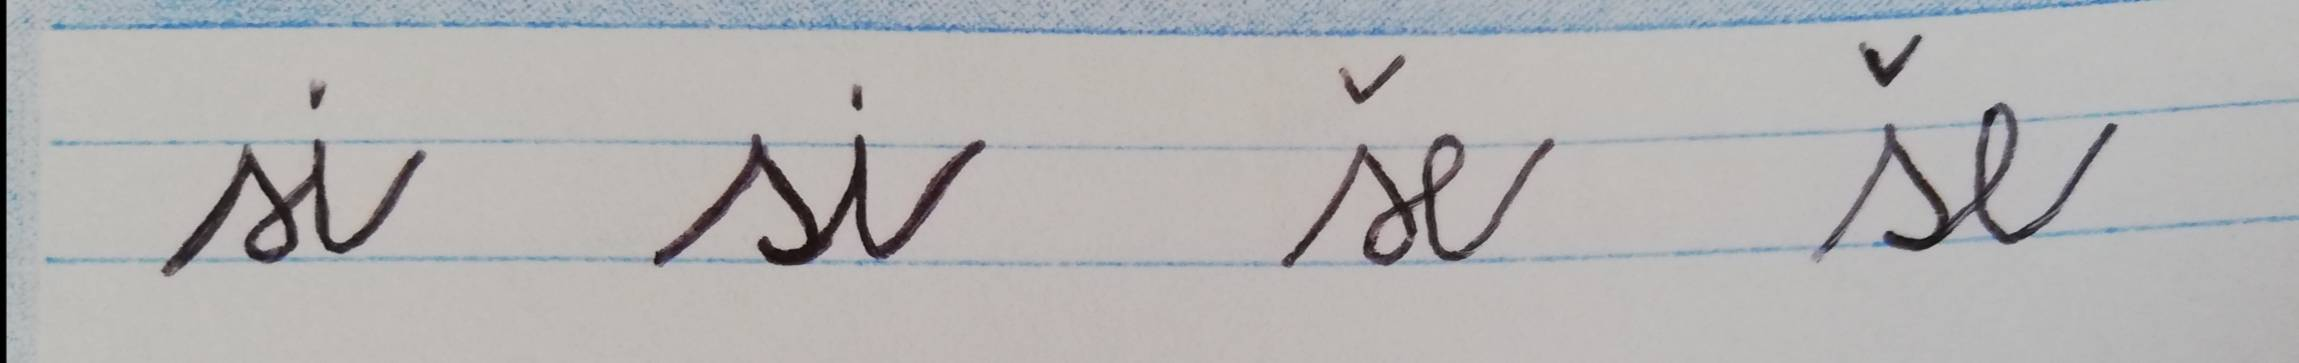 si si še še